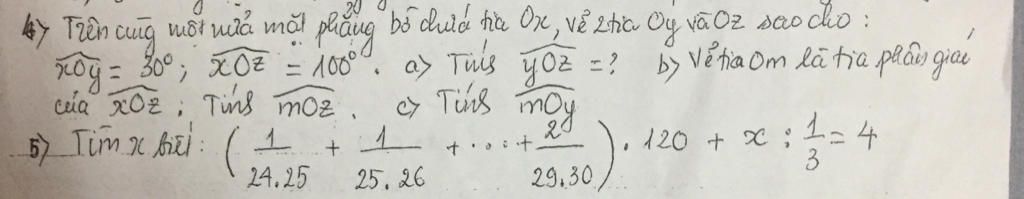 4) Trên cùng một nửa mặt phẳng bờ chứa tia Ox, vẽ 2 tia Oy và Oz sao cho :
xOy = 30°; xOz = 100°. a) Tính yOz = ? b) Vẽ tia Om là tia phân giác
của xOz ; Tính mOz . c) Tính mOy
5) Tìm x biết : ( 1/24.25 + 1/25.26 + ... + 2/29.30 ) . 120 + x : 1/3 = 4